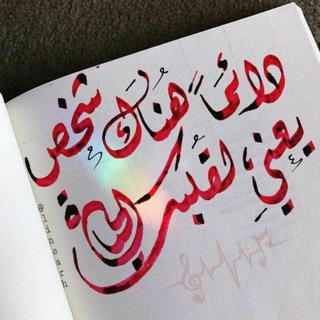 دائماً هُناك شخص
يعني لقلبك الحياة